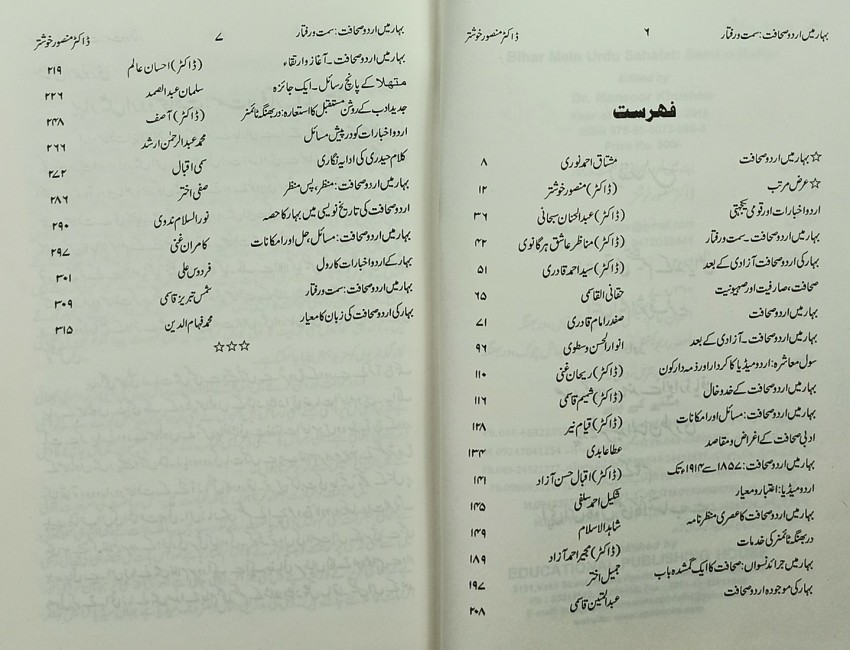 بہار میں اردو صحافت: سمت و رفتار ۶ ڈاکٹر منصور خوشتر
فہرست
☆ بہار میں اردو صحافت مشتاق احمد نوری ۸
☆ عرض مرتب (ڈاکٹر) منصور خوشتر ۱۲
اردو اخبارات اور قومی یکجہتی (ڈاکٹر) عبدالمنان سبحانی ۳۶
بہار میں اردو صحافت۔ سمت و رفتار (ڈاکٹر) مناظر عاشق ہرگانوی ۴۲
بہار کی اردو صحافت آزادی کے بعد (ڈاکٹر) سید احمد قادری ۵۱
صحافت، صارفیت اور صہیونیت حقانی القاسمی ۶۵
بہار میں اردو صحافت صفدر امام قادری ۷۱
بہار میں اردو صحافت۔ آزادی کے بعد انوار الحسن وسطوی ۹۶
سول معاشرہ: اردو میڈیا کا کردار اور ذمہ دار کون (ڈاکٹر) ریحان غنی ۱۱۰
بہار میں اردو صحافت کے خدوخال (ڈاکٹر) شمیم قاسمی ۱۱۶
بہار میں اردو صحافت: مسائل اور امکانات (ڈاکٹر) قیام نیر ۱۲۸
ادبی صحافت کے اغراض و مقاصد عطا عابدی ۱۳۴
بہار میں اردو صحافت: ۱۸۵۷ سے ۱۹۱۴ء تک (ڈاکٹر) اقبال حسن آزاد ۱۴۱
اردو میڈیا: اعتبار و معیار شکیل احمد سلفی ۱۴۵
بہار میں اردو صحافت کا عصری منظرنامہ شاہد الاسلام ۱۴۹
دربھنگہ ٹائمنر کی خدمات (ڈاکٹر) مجیر احمد آزاد ۱۸۹
بہار میں جرائد نسواں: صحافت کا ایک گمشدہ باب جمیل اختر ۱۹۷
بہار کی موجودہ اردو صحافت عبدالمتین قاسمی ۲۰۸
بہار میں اردو صحافت: سمت و رفتار ۷ ڈاکٹر منصور خوشتر
بہار میں اردو صحافت۔ آغاز و ارتقاء (ڈاکٹر) احسان عالم ۲۱۹
متھلا کے پانچ رسائل۔ ایک جائزہ سلمان عبدالصمد ۲۲۶
جدید ادب کے روشن مستقبل کا استعارہ: دربھنگہ ٹائمنر (ڈاکٹر) آصف ۲۴۸
اردو اخبارات کو درپیش مسائل محمد عبدالرحمٰن ارشد ۲۶۶
کلام حیدری کی اداریہ نگاری سمی اقبال ۲۷۲
بہار میں اردو صحافت: منظر، پس منظر صفی اختر ۲۸۶
اردو صحافت کی تاریخ نویسی میں بہار کا حصہ نور السلام ندوی ۲۹۰
بہار میں اردو صحافت: مسائل، حل اور امکانات کامران غنی ۲۹۷
بہار کے اردو اخبارات کا رول فردوس علی ۳۰۱
بہار میں اردو صحافت: سمت و رفتار شمس تبریز قاسمی ۳۰۹
بہار کی اردو صحافت کی زبان کا معیار محمد فہام الدین ۳۱۵
☆☆☆